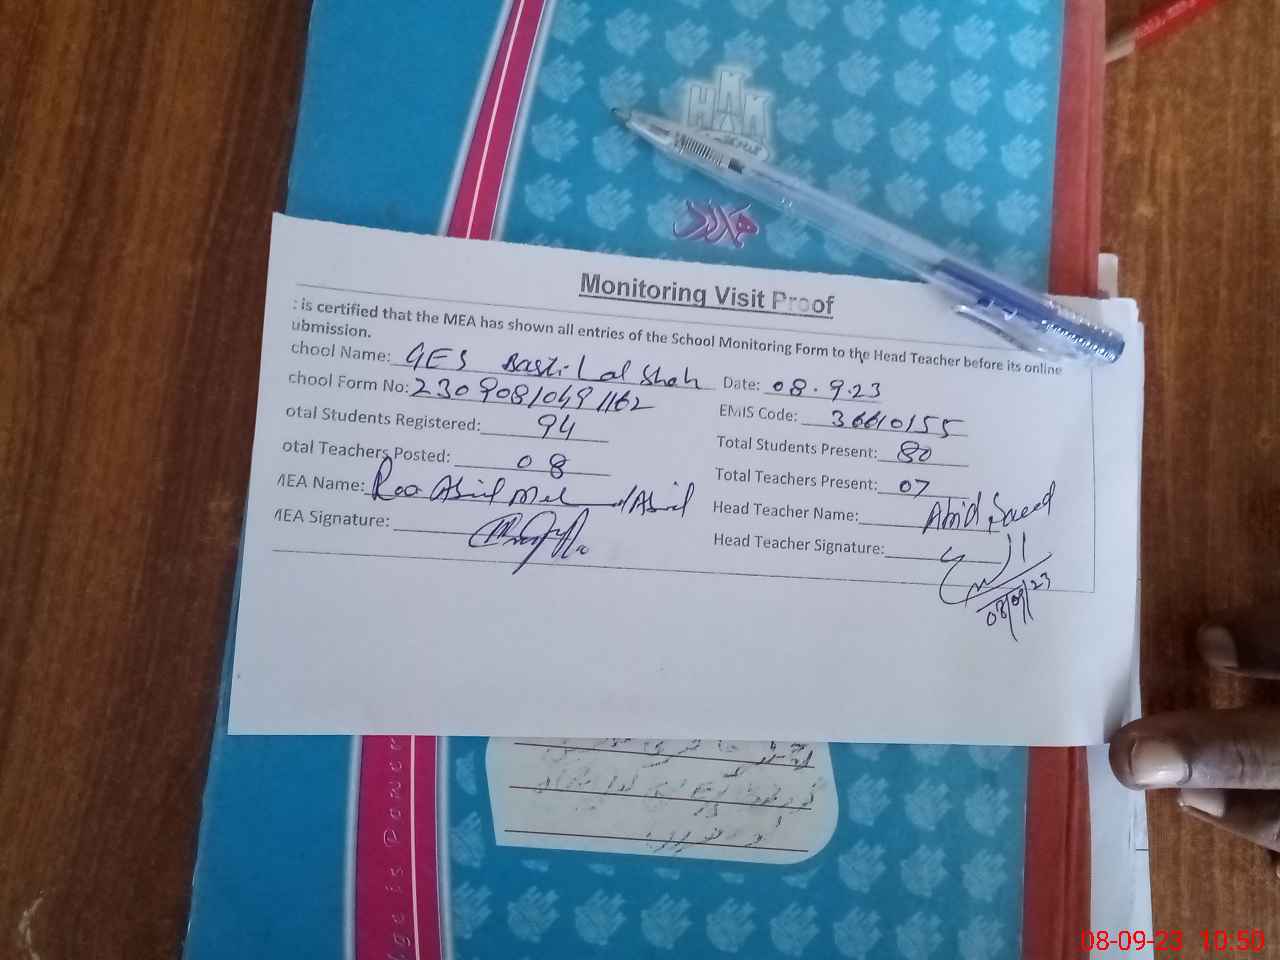 HAK
ہمدرد
Monitoring Visit Proof
: is certified that the MEA has shown all entries of the School Monitoring Form to the Head Teacher before its online
ubmission.
chool Name: GES Basti Lal Shah Date: 08.9.23
chool Form No: 23090810491162 EMIS Code: 36610155
otal Students Registered: 94 Total Students Present: 80
otal Teachers Posted: 08 Total Teachers Present: 07
MEA Name: Rao Head Teacher Name: Abid Saeed
MEA Signature: Head Teacher Signature:
08/09/23
ge is Power
08-09-23 10:50